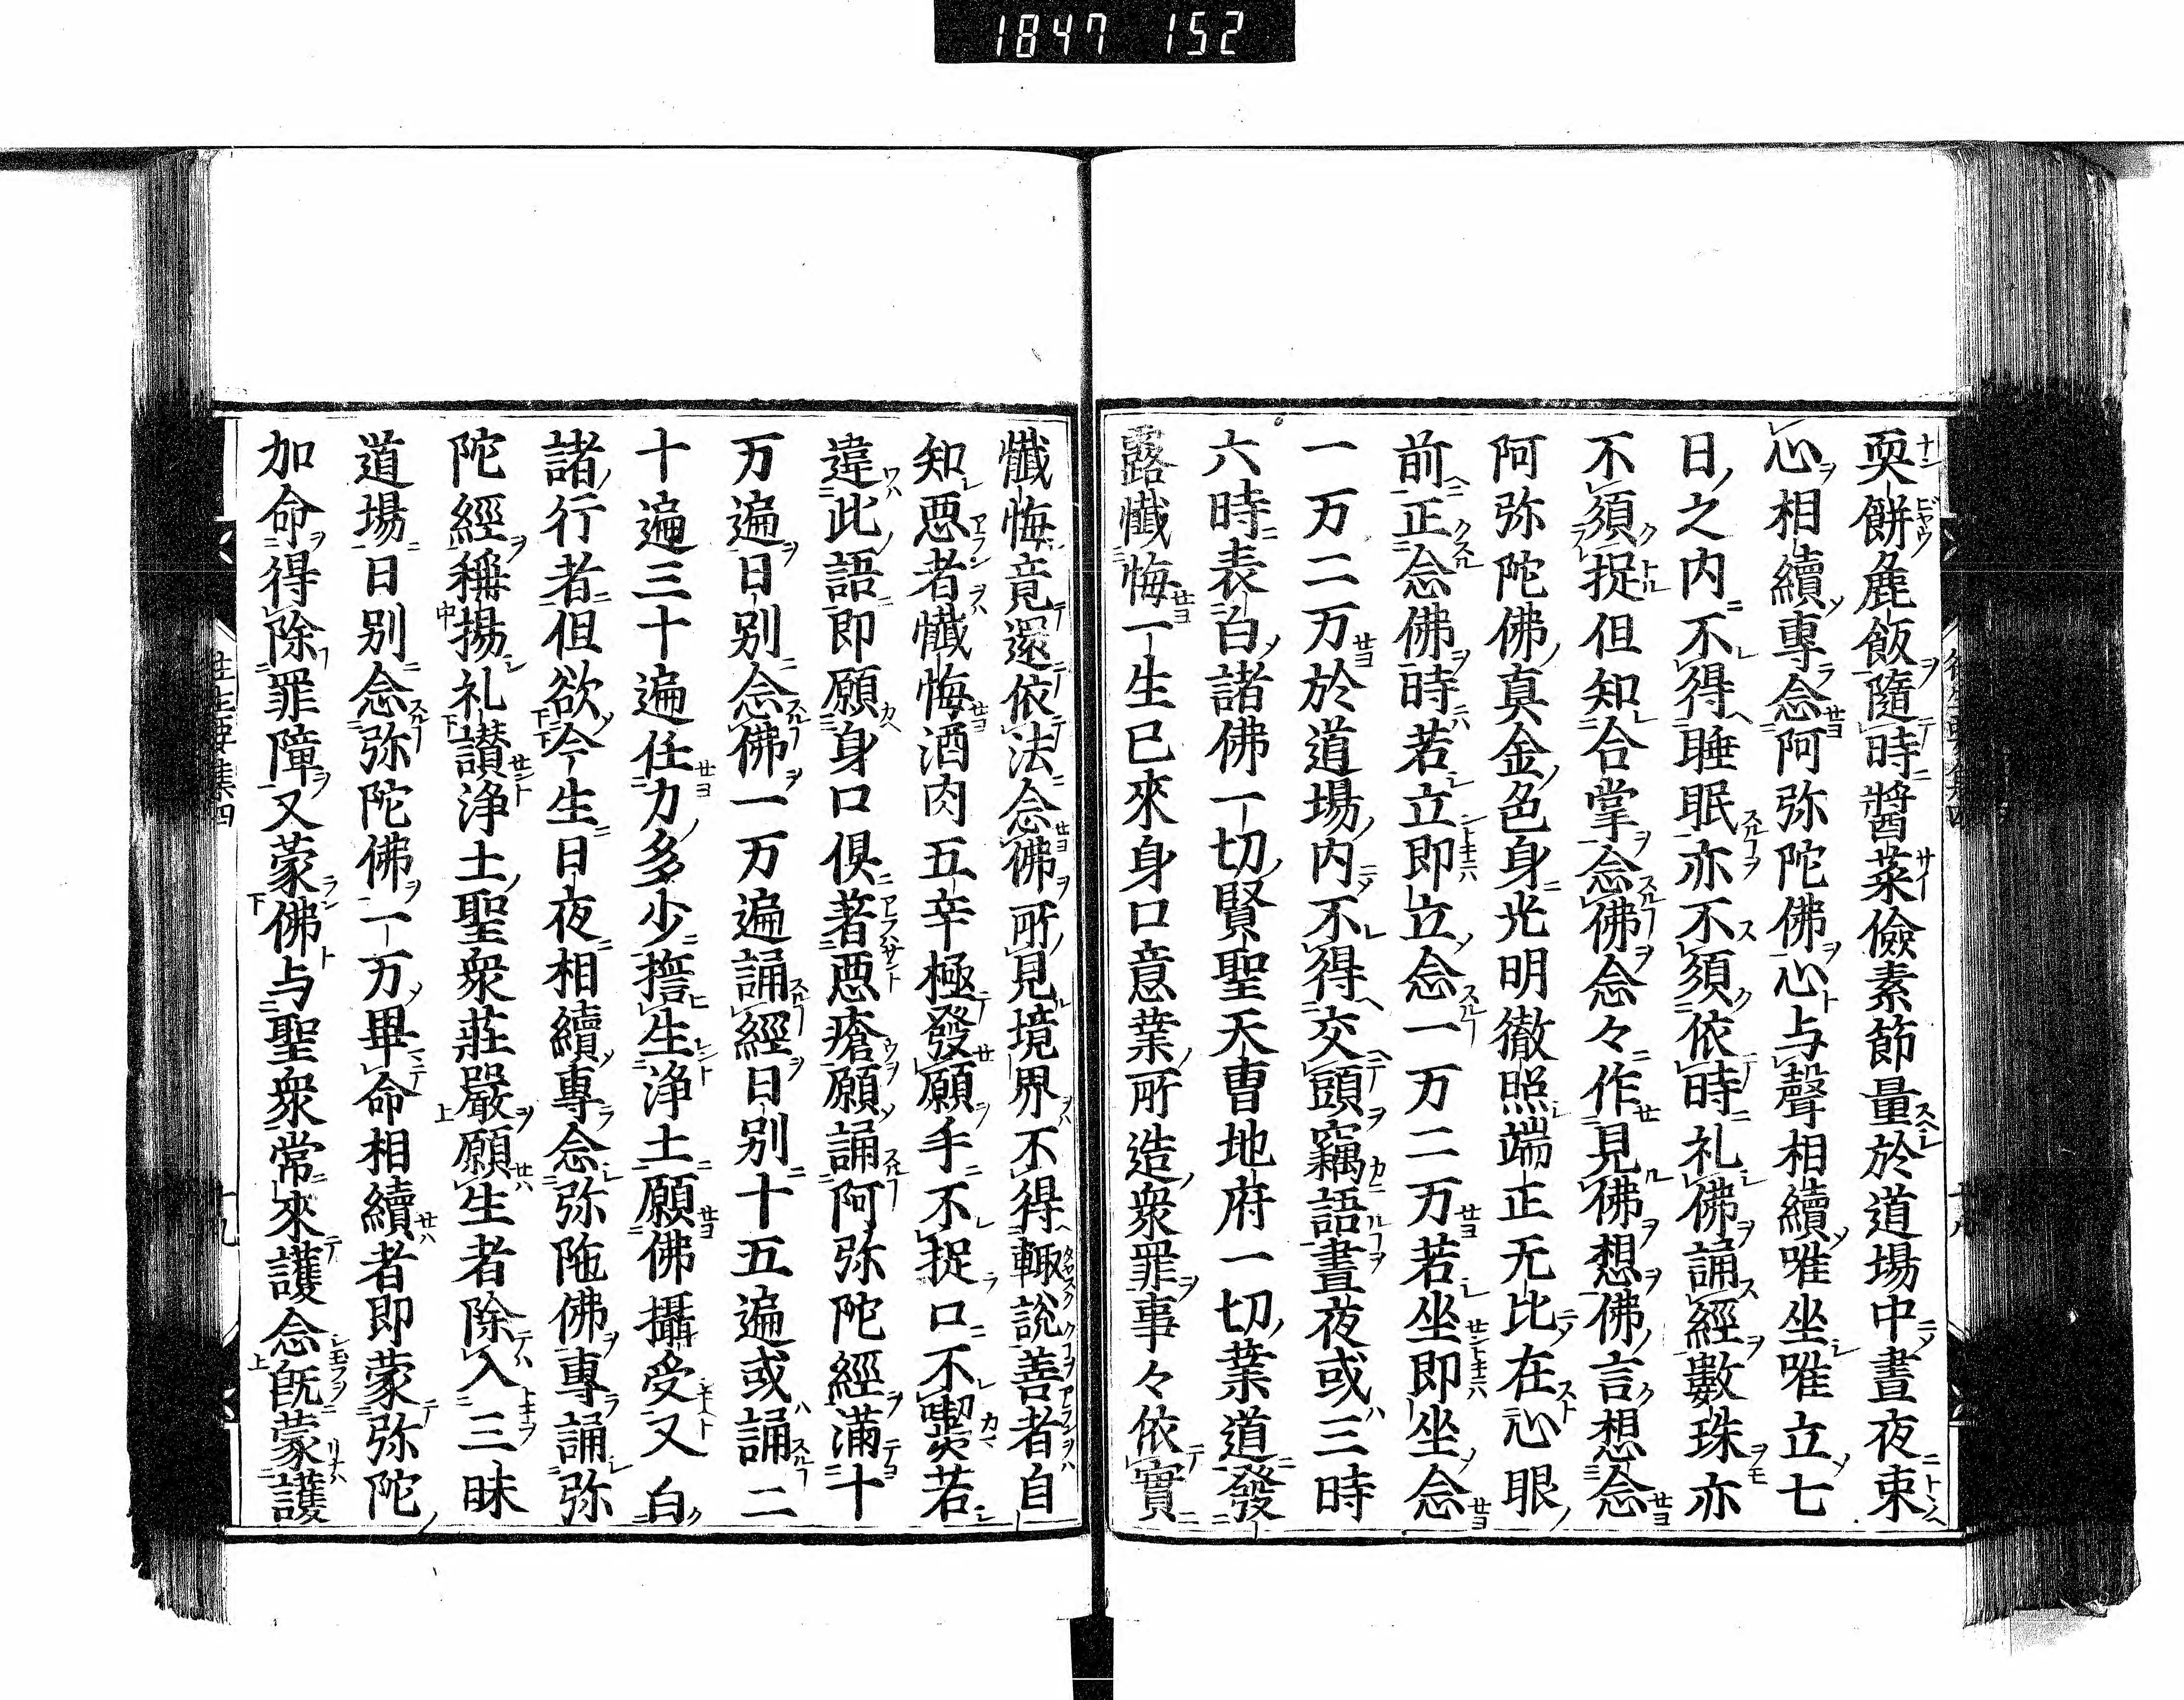 1847 152
耎餅麁飯隨時醬菜儉素節量於道場中晝夜束
心相續專念阿弥陀佛心与聲相續唯坐唯立七
日之内不得睡眠亦不須依時礼佛誦經數珠亦
不須捉但知合掌念佛念々作見佛想佛言想念
阿弥陀佛真金色身光明徹照端正无比在心眼
前正念佛時若立即立念一万二万若坐即坐念
一万二万於道場内不得交頭竊語晝夜或三時
六時表白諸佛一切賢聖天曹地府一切業道發
露懺悔一生已來身口意業所造衆罪事々依實
懺悔竟還依法念佛所見境界不得輙說善者自
知悪者懺悔酒肉五辛極發願手不捉口不喫若
違此語即願身口俱著悪瘡願誦阿弥陀經滿十
万遍日别念佛一万遍誦經日别十五遍或誦二
十遍三十遍任力多少擔生浄土願佛攝受又白
諸行者但欲今生日夜相續專念弥陁佛專誦弥
陀經稱揚礼讃浄土聖衆莊嚴願生者除入三昧
道場日别念弥陀佛一万畢命相續者即蒙弥陀
加命得除罪障又蒙佛与聖衆常來護念旣蒙護